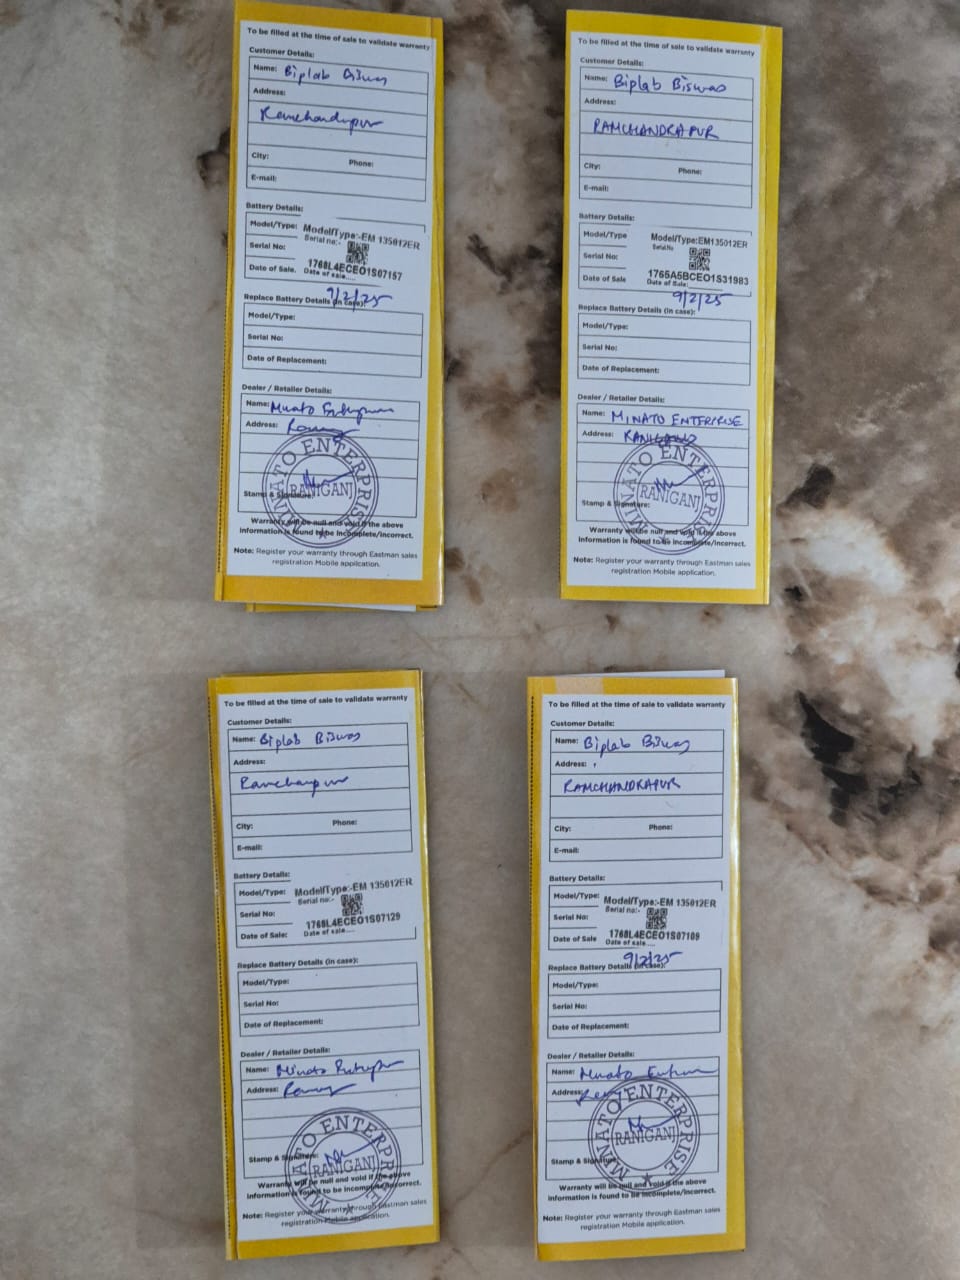 To be filled at the time of sale to validate warranty
Customer Details:
Name: Biplab Biswas
Address:
Ramchandrapur
City: Phone:
E-mail:
Battery Details:
Model/Type: Model/Type:-EM 135012ER
Serial No: Serial no:-
1768L4ECEO1S07157
Date of Sale. Date of sale.....
9/2/25
Replace Battery Details (in case):
Model/Type:
Serial No:
Date of Replacement:
Dealer / Retailer Details:
Name: Minato
Address:
MINATO ENTERPRISE
RANIGANJ
Stamp & Signature:
Warranty will be null and void if the above
information is found to be incomplete/incorrect.
Note: Register your warranty through Eastman sales
registration Mobile application.
To be filled at the time of sale to validate warranty
Customer Details:
Name: Biplab Biswas
Address:
RAMCHANDRAPUR
City: Phone:
E-mail:
Battery Details:
Model/Type Model/Type:EM135012ER
Serial No: Serial No
1765A5BCEO1S31983
Date of Sale Date of Sale:
9/2/25
Replace Battery Details (in case):
Model/Type:
Serial No:
Date of Replacement:
Dealer / Retailer Details:
Name: MINATO ENTERPRISE
Address: RANIGANJ
MINATO ENTERPRISE
RANIGANJ
Stamp & Signature:
Warranty will be null and void if the above
information is found to be incomplete/incorrect.
Note: Register your warranty through Eastman sales
registration Mobile application.
To be filled at the time of sale to validate warranty
Customer Details:
Name: Biplab Biswas
Address:
City: Phone:
E-mail:
Battery Details:
Model/Type: Model/Type:-EM 135012ER
Serial No: Serial no:-
1768L4ECEO1S07129
Date of Sale: Date of sale.....
Replace Battery Details (in case):
Model/Type:
Serial No:
Date of Replacement:
Dealer / Retailer Details:
Name: Minato
Address:
MINATO ENTERPRISE
RANIGANJ
Stamp & Signature:
Warranty will be null and void if the above
information is found to be incomplete/incorrect.
Note: Register your warranty through Eastman sales
registration Mobile application.
To be filled at the time of sale to validate warranty
Customer Details:
Name: Biplab Biswas
Address:
RAMCHANDRAPUR
City: Phone:
E-mail:
Battery Details:
Model/Type: Model/Type:-EM 135012ER
Serial No: Serial no:-
1768L4ECEO1S07109
Date of Sale Date of sale.....
9/2/25
Replace Battery Details (in case):
Model/Type:
Serial No:
Date of Replacement:
Dealer / Retailer Details:
Name: Minato
Address:
MINATO ENTERPRISE
RANIGANJ
Stamp & Signature:
Warranty will be null and void if the above
information is found to be incomplete/incorrect.
Note: Register your warranty through Eastman sales
registration Mobile application.